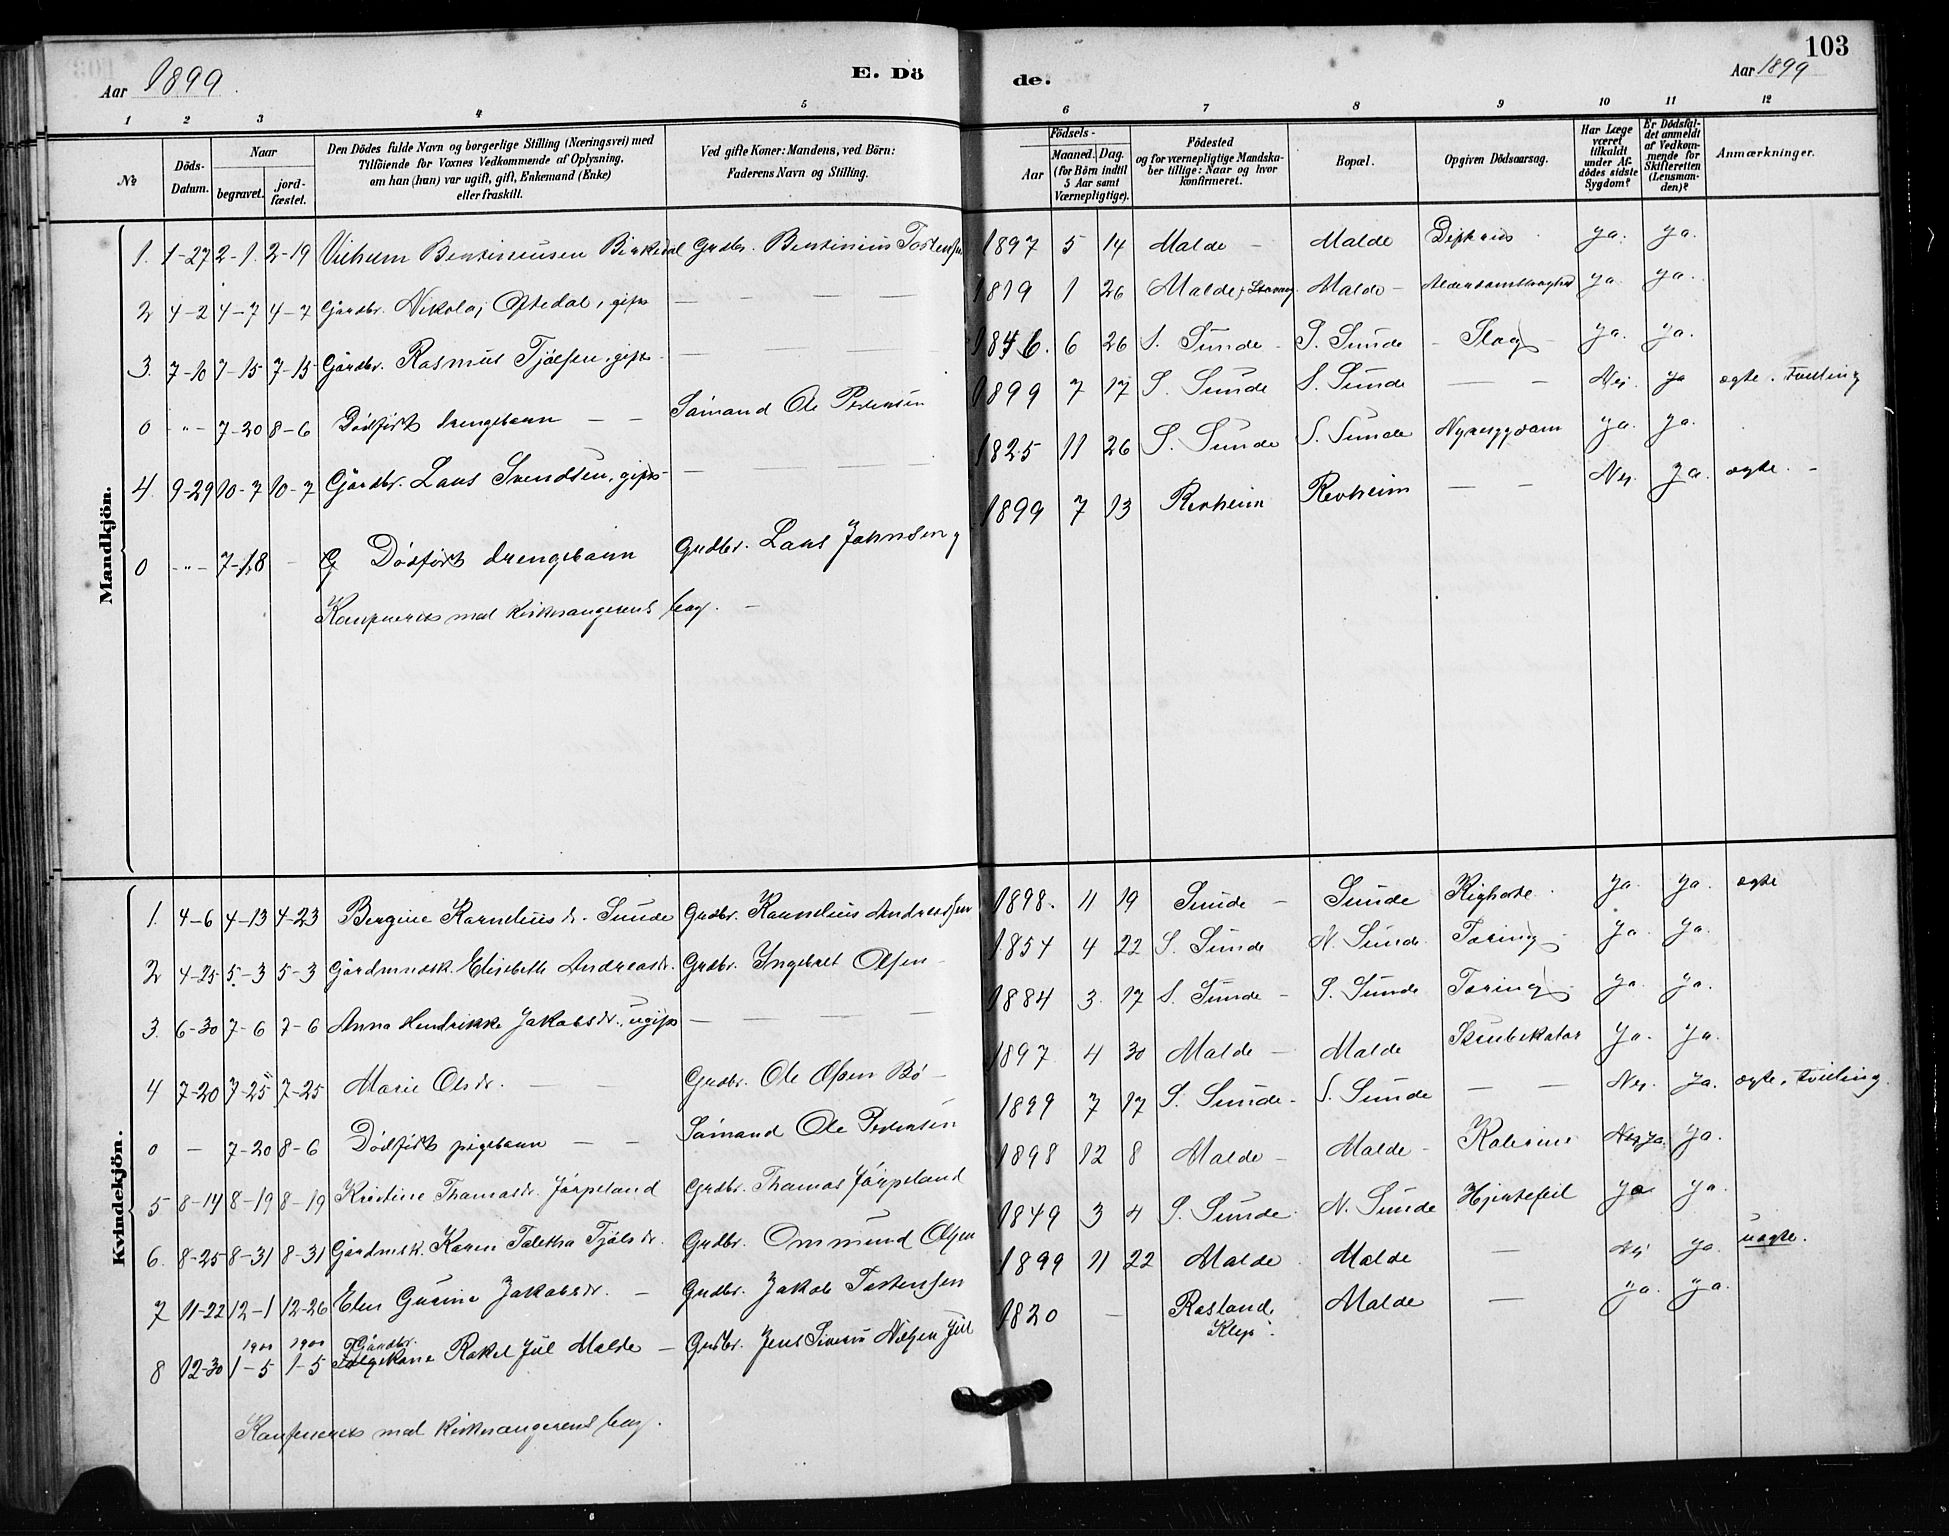 103
Aar 1899. E. Dö de. Aar 1899
1 2 3 4 5 6 7 8 9 10 11 12
№ Döds-Datum. Naar begravet. jordfæstet. Den Dödes fulde Navn og borgerlige Stilling (Næringsvei) med Tilföiende for Voxnes Vedkommende af Oplysning, om han (hun) var ugift, gift, Enkemand (Enke) eller fraskilt. Ved gifte Koner: Mandens, ved Börn: Faderens Navn og Stilling. Aar Födsels- Maaned. Dag. (for Börn indtil 5 Aar samt Værnepligtige). Födested og for værnepligtige Mandskaber tillige: Naar og hvor konfirmeret. Bopæl. Opgiven Dödsaarsag. Har Læge været tilkaldt under Afdödes sidste Sygdom? Er Dödsfaldet anmeldt af Vedkommende for Skifteretten (Lensmanden)? Anmærkninger.
Mandkjön.
1. 1-27 2-1. 2-19 Vilhelm Bentiniussen Birkedal Grdbr. Bentinius Tostensen 1897 5 14 Malde - Malde Difteritis ja. ja.
2 4-2 4-7 4-7 Gårdbr. Nikolaj Oftedal, gift — — — — 1819 1 26 Malde, Malde - Alderdomssvaghed ja. ja.
3. 7-10 7-15 7-15 Gårdbr. Rasmus Tjølsen, gift - — — — 1846. 6 26 S. Sunde - S. Sunde - Slag - ja. ja.
0 -"- 7-20 8-6 Dödfødt drengebarn — — Sømand Ole Pedersen 1899 7 17 S. Sunde S. Sunde — — Nej. ja ægte. Tvilling
4. 9-29 10-7 10-7 Gårdbr. Lars Svendsen, gift - — — — 1825 11 26 S. Sunde S. Sunde Nyresygdom ja. ja.
0 -"- 7-18 - Dödfødt drengebarn Grdbr. Lars Johnsen 1899 7 13 Revheim Revheim — — Nej. ja. ægte. -
Konfereret med kirkesangerens bog. -
Kvindekjön.
1. 4-6 4-13 4-23 Bergine Korneliusdr. Sunde Grdbr. Kornelius Andreassen 1898. 11 19 Sunde - Sunde Kighoste. ja. ja. ægte
2 4-25 5-3 5-3 Gårdmandsk. Elisabeth Andreasdr. Grdbr. Ingebret Olsen - 1854 4 22 S. Sunde N. Sunde Tæring - ja. ja.
3. 6-30 7-6 7-6 Anna Hendrikke Jakobsdr., ugift — — — — 1884 3. 17 S. Sunde - S. Sunde Tæring - ja. ja.
4 7-20 7-25 7-25 Marie Olsdr. — — Grdbr. Ole Olsen Bø - 1897 4 30 Malde - Malde ja. ja.
0 — 7-20 8-6 Dödfødt pigebarn — — Sømand Ole Pedersen 1899 7 17 S. Sunde - S. Sunde — — Nej. ja. ægte, Tvilling.
5 8-14 8-19 8-19 Kristine Thomasdr. Jørpeland Grdbr. Thomas Jørpeland 1898 12 8 Malde - Malde - Kolerine ja. ja.
6. 8-25 8-31 8-31 Gårdmsk. Karen Taletha Tjølsdr. Grdbr. Ommund Olsen 1849 3 4 S. Sunde. N. Sunde Hjertefeil ja ja.
7 11-22 12-1 12-26 Elen Gurine Jakobsdr. — Grdbr. Jakob Tostensen 1899 11 22 Malde Malde — Nej ja. uægte.
8 12-30 1900 1-5 1900 1-5 Gårdbr. Følgekone Rakel Jül Malde — Grdbr. Jens Nielsen Jül 1820 — Rosland, Klep. Malde — ja. ja.
Konfereret med kirkesangerens bog.